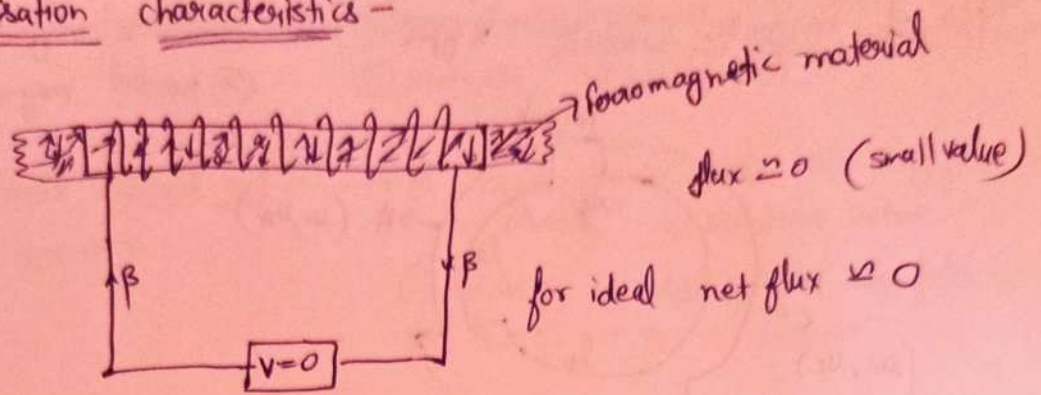 sation characteristics -
ferromagnetic material
flux ≃ 0 (small value)
β
β
for ideal net flux ≃ 0
V=0